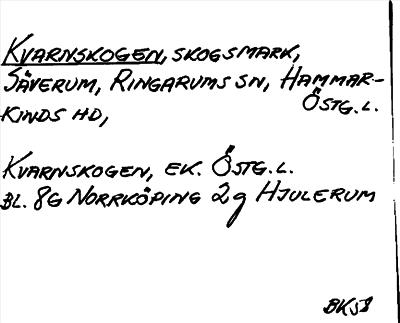 KVARNSKOGEN, SKOGSMARK,
SÄVERUM, RINGARUMS SN, HAMMAR-
KINDS HD, ÖSTG. L.
KVARNSKOGEN, EK. ÖSTG. L.
BL. 8G NORRKÖPING 2g HJULERUM